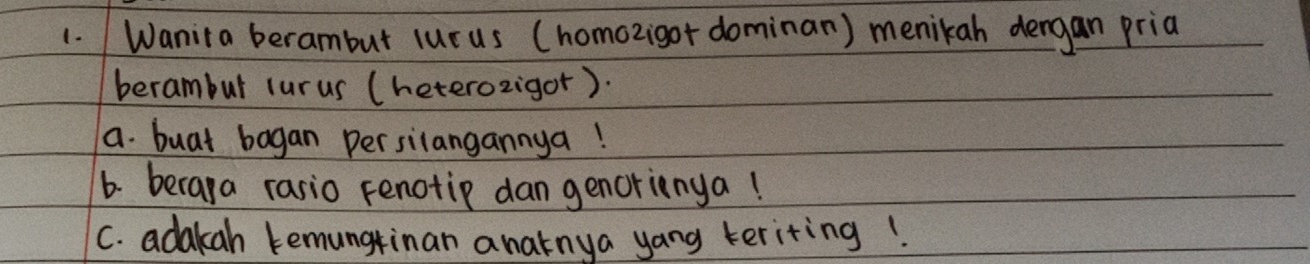 1. Wanita berambut lurus (homozigot dominan) menikah dengan pria
berambut lurus (heterozigot).
a. buat bagan persilangannya !
b. berapa rasio fenotip dan genotipnya !
c. adakah kemungkinan anaknya yang keriting !